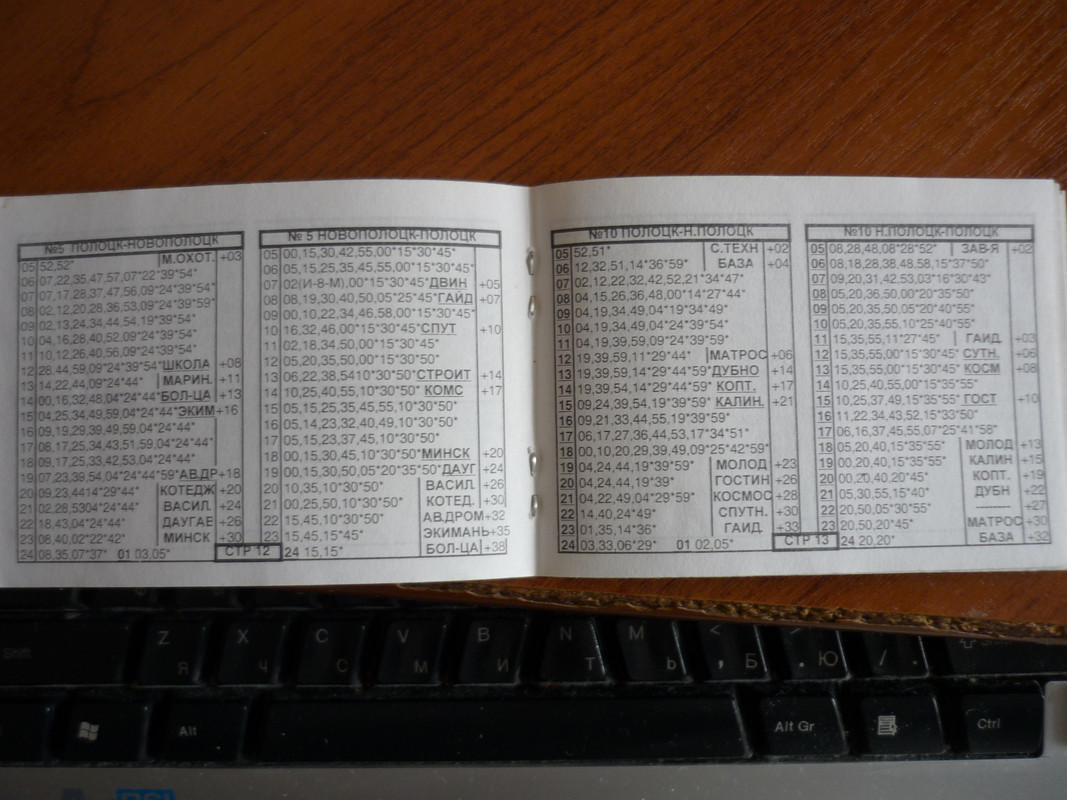 №5 ПОЛОЦК-НОВОПОЛОЦК
05 52,52* М.ОХОТ. +03
06 07,22,35,47,57,07*22*39*54*
07 07,17,28,37,47,56,09*24*39*54*
08 02,12,20,28,36,53,09*24*39*59*
09 02,13,24,34,44,54,19*39*54*
10 04,16,28,40,52,09*24*39*54*
11 10,12,26,40,56,09*24*39*54*
12 28,44,59,09*24*39*54*ШКОЛА +08
13 14,22,44,09*24*44* МАРИН. +11
14 00,16,32,48,04*24*44*БОЛ-ЦА +13
15 04,25,34,49,59,04*24*44*ЭКИМ +16
16 09,19,29,39,49,59,04*24*44*
17 06,17,25,34,43,51,59,04*24*44*
18 09,17,25,33,42,53,04*24*44*
19 07,23,39,54,04*24*44*59*АВ.ДР +18
20 09,23,4414*29*44* КОТЕДЖ +20
21 02,28,5304*24*44* ВАСИЛ. +24
22 18,43,04*24*44* ДАУГАЕ +26
23 08,40,02*22*42* МИНСК +30
24 08,35,07*37* 01 03,05*
СТР 12
№ 5 НОВОПОЛОЦК-ПОЛОЦК
05 00,15,30,42,55,00*15*30*45*
06 05,15,25,35,45,55,00*15*30*45*
07 02(И-8-М),00*15*30*45*ДВИН +05
08 08,19,30,40,50,05*25*45*ГАЙД +07
09 00,10,22,34,46,58,00*15*30*45*
10 16,32,46,00*15*30*45*СПУТ +10
11 02,18,34,50,00*15*30*45*
12 05,20,35,50,00*15*30*50*
13 06,22,38,5410*30*50*СТРОИТ +14
14 10,25,40,55,10*30*50* КОМС +17
15 05,15,25,35,45,55,10*30*50*
16 05,14,23,32,40,49,10*30*50*
17 05,15,23,37,45,10*30*50*
18 00,15,30,45,10*30*50*МИНСК +20
19 00,15,30,50,05*20*35*50*ДАУГ +24
20 10,35,10*30*50* ВАСИЛ. +26
21 00,25,50,10*30*50* КОТЕД. +30
22 15,45,10*30*50* АВ.ДРОМ+32
23 15,45,15*45* ЭКИМАНЬ+35
24 15,15* БОЛ-ЦА +38
№10 ПОЛОЦК-Н.ПОЛОЦК
05 52,51* С.ТЕХН +02
06 12,32,51,14*36*59* БАЗА +04
07 02,12,22,32,42,52,21*34*47*
08 04,15,26,36,48,00*14*27*44*
09 04,19,34,49,04*19*34*49*
10 04,19,34,49,04*24*39*54*
11 04,19,39,59,09*24*39*59*
12 19,39,59,11*29*44* МАТРОС +06
13 19,39,59,14*29*44*59*ДУБНО +14
14 19,39,54,14*29*44*59* КОПТ. +17
15 09,24,39,54,19*39*59* КАЛИН. +21
16 09,21,33,44,55,19*39*59*
17 06,17,27,36,44,53,17*34*51*
18 00,10,20,29,39,49,09*25*42*59*
19 04,24,44,19*39*59* МОЛОД +23
20 04,24,44,19*39* ГОСТИН +26
21 04,22,49,04*29*59* КОСМОС +28
22 14,40,24*49* СПУТН. +30
23 01,35,14*36* ГАИД. +33
24 03,33,06*29* 01 02,05*
СТР 13
№10 Н.ПОЛОЦК-ПОЛОЦК
05 08,28,48,08*28*52* ЗАВ-Я +02
06 08,18,28,38,48,58,15*37*50*
07 09,20,31,42,53,03*16*30*43*
08 05,20,36,50,00*20*35*50*
09 05,20,35,50,05*20*40*55*
10 05,20,35,55,10*25*40*55*
11 15,35,55,11*27*45* ГАИД. +03
12 15,35,55,00*15*30*45* СУТН. +06
13 15,35,55,00*15*30*45* КОСМ +08
14 10,25,40,55,00*15*35*55*
15 10,25,37,49,15*35*55* ГОСТ +10
16 11,22,34,43,52,15*33*50*
17 06,16,37,45,55,07*25*41*58*
18 05,20,40,15*35*55* МОЛОД +13
19 00,20,40,15*35*55* КАЛИН +15
20 00,20,40,20*45* КОПТ. +19
21 05,30,55,15*40* ДУБН +22
22 20,50,05*30*55* -------- +27
23 20,50,20*45* МАТРОС +30
24 20,20* БАЗА +32
Shift
Z Я
X Ч
C С
V М
B И
N Т
M Ь
< , Б
> . Ю
/ .
Alt
Alt Gr
Ctrl